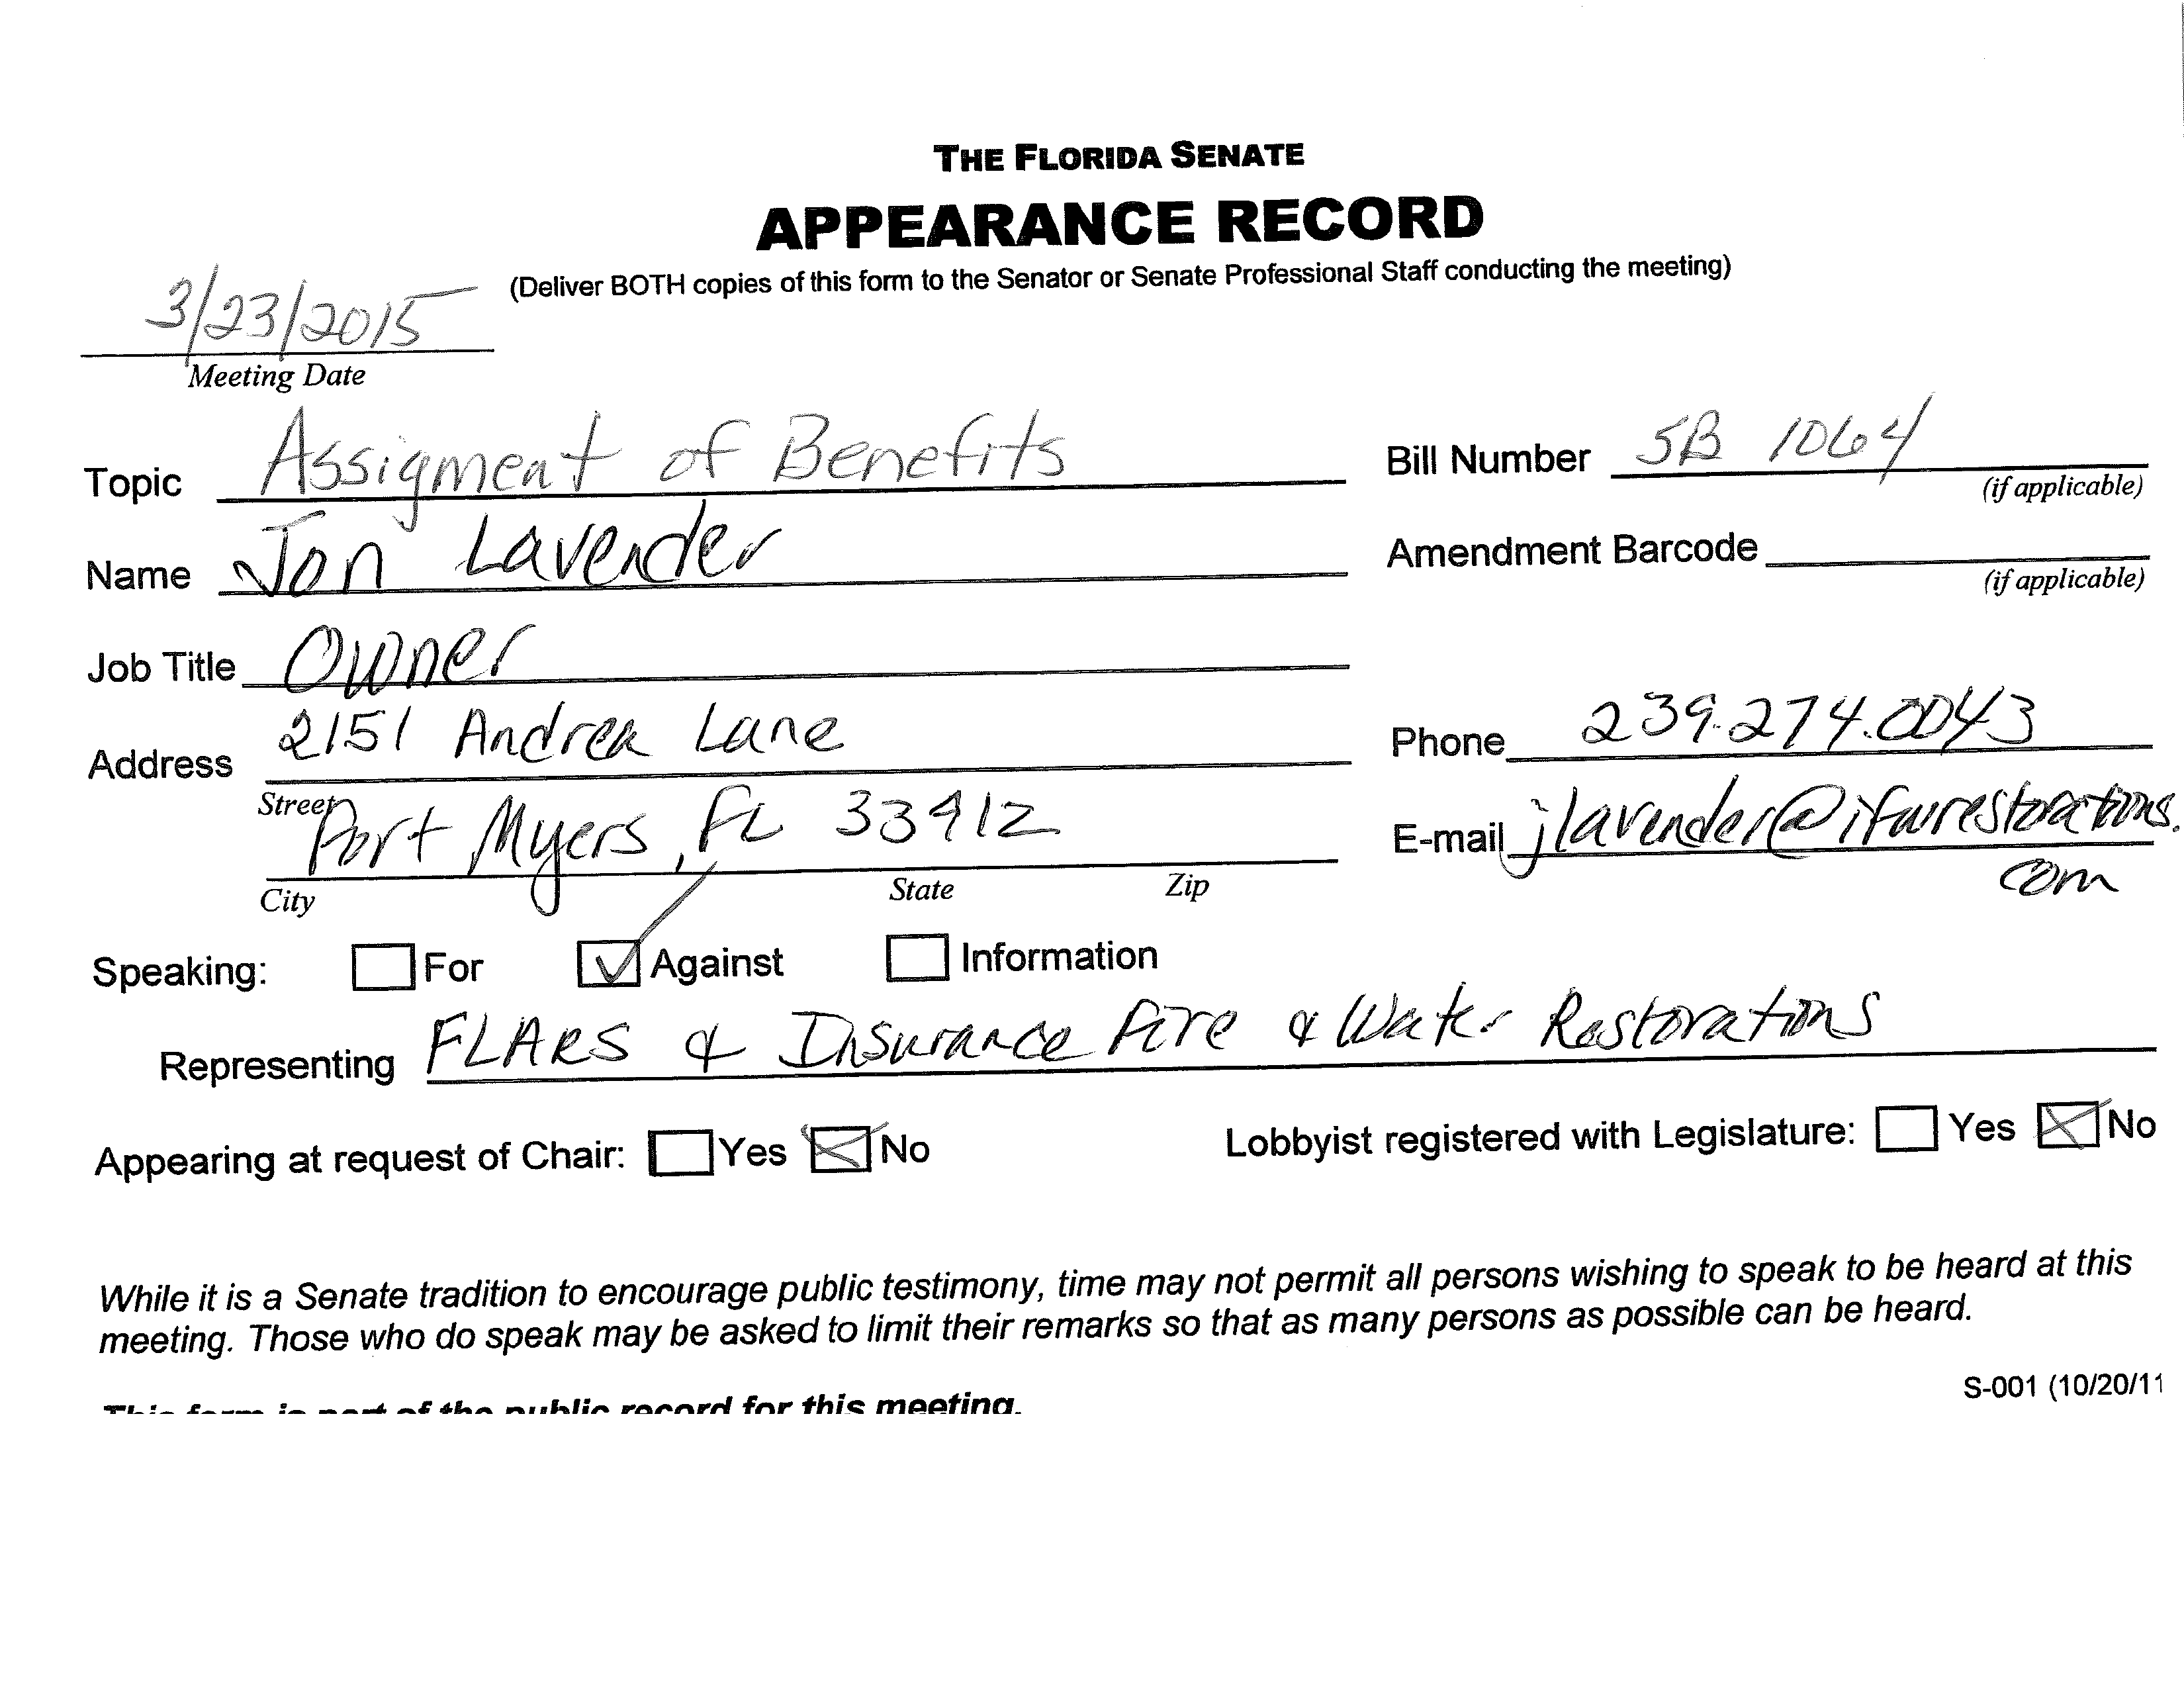 THE FLORIDA SENATE
APPEARANCE RECORD
(Deliver BOTH copies of this form to the Senator or Senate Professional Staff conducting the meeting)
3/23/2015
Meeting Date
Topic Assigment of Benefits
Bill Number SB 1064
(if applicable)
Name Jon Lavender
Amendment Barcode
(if applicable)
Job Title Owner
Address 2151 Andrea Lane
Phone 239.274.0043
Street
Fort Myers, FL 33912
E-mail jlavender@ifwrestorations.
com
City State Zip
Speaking: For Against Information
Representing FLARS & Insurance Fire & Water Restorations
Appearing at request of Chair: Yes No Lobbyist registered with Legislature: Yes No
While it is a Senate tradition to encourage public testimony, time may not permit all persons wishing to speak to be heard at this
meeting. Those who do speak may be asked to limit their remarks so that as many persons as possible can be heard.
S-001 (10/20/11
This form is part of the public record for this meeting.